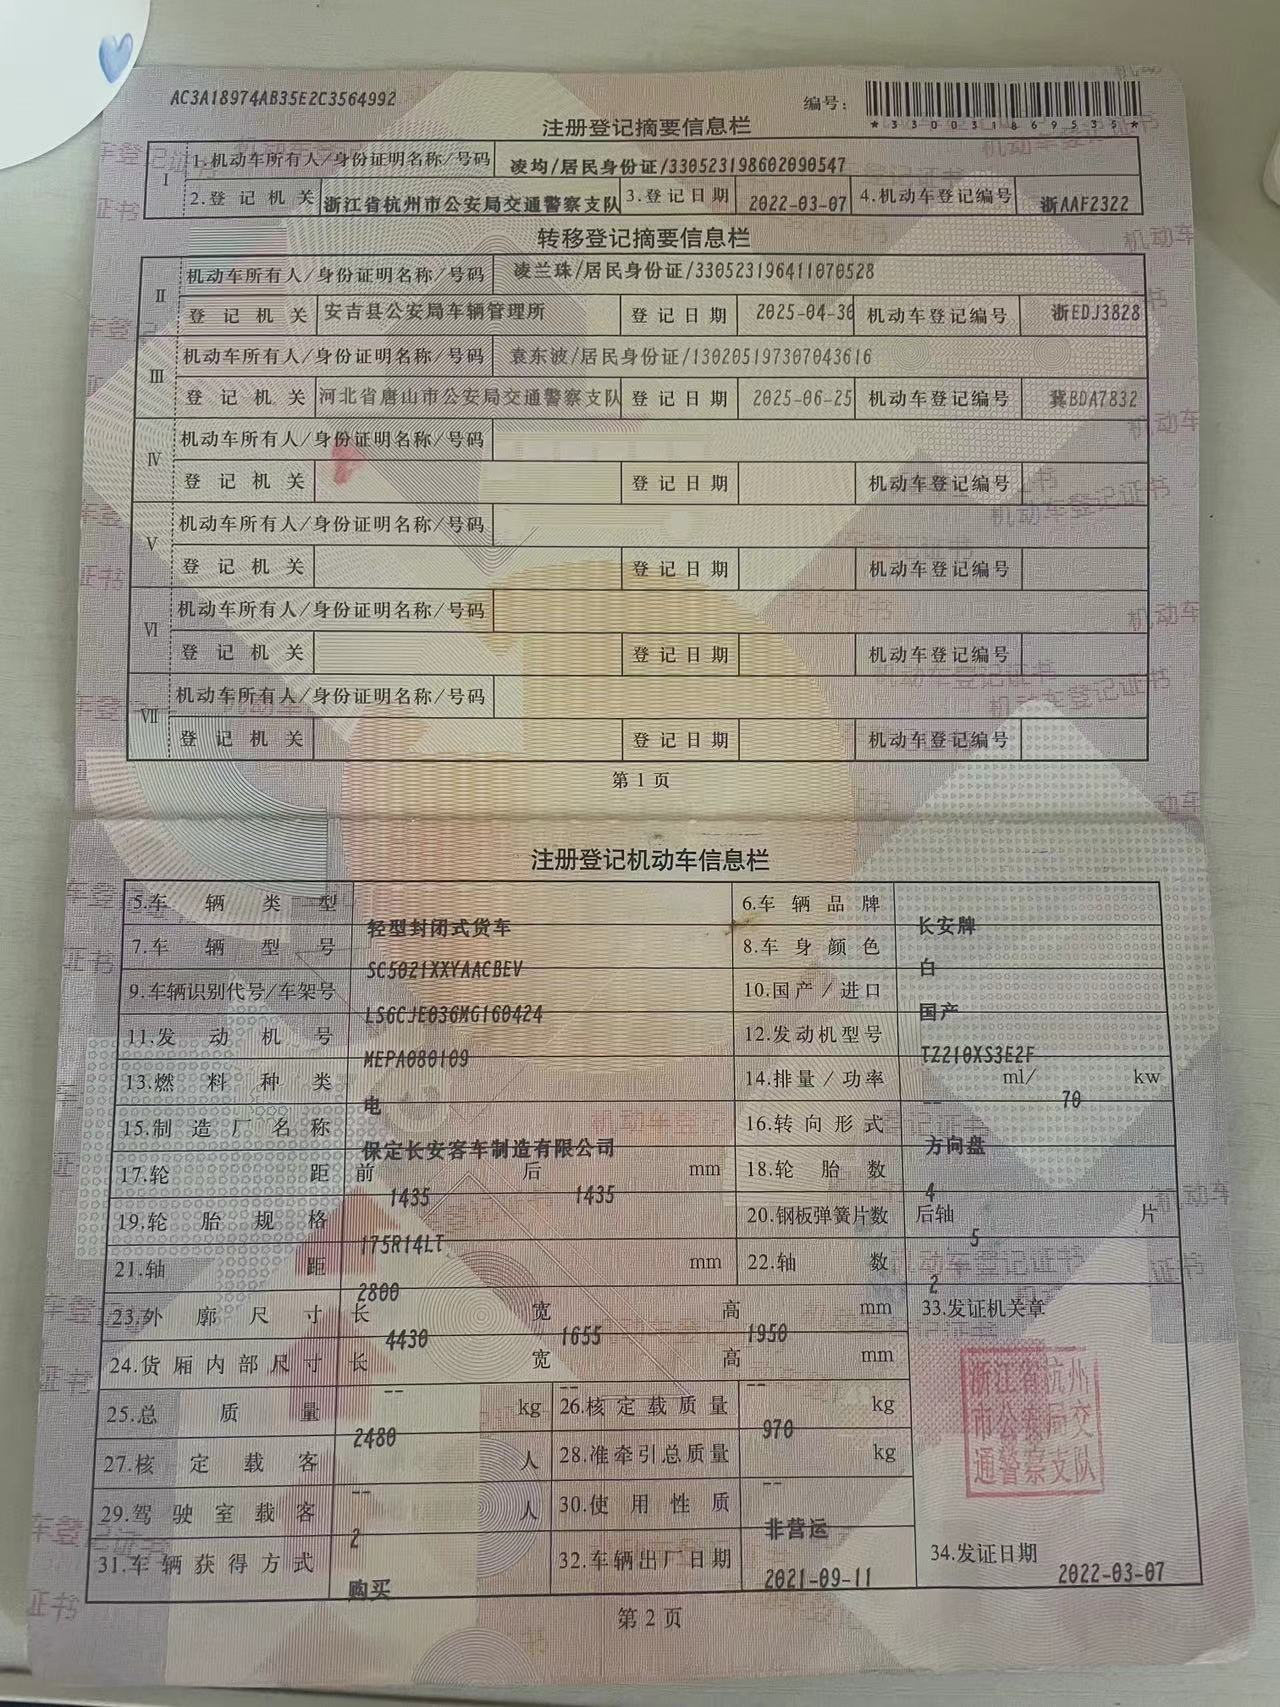 AC3A18974AB35E2C3564992
编号：
*330031869535*
注册登记摘要信息栏
I 1.机动车所有人/身份证明名称/号码 凌均/居民身份证/330523198602090547
2.登记机关 浙江省杭州市公安局交通警察支队 3.登记日期 2022-03-07 4.机动车登记编号 浙AAF2322
转移登记摘要信息栏
II 机动车所有人/身份证明名称/号码 凌兰珠/居民身份证/330523196411070528
登记机关 安吉县公安局车辆管理所 登记日期 2025-04-30 机动车登记编号 浙EDJ3828
III 机动车所有人/身份证明名称/号码 袁东波/居民身份证/130205197307043616
登记机关 河北省唐山市公安局交通警察支队 登记日期 2025-06-25 机动车登记编号 冀BDA7832
IV 机动车所有人/身份证明名称/号码
登记机关 登记日期 机动车登记编号
V 机动车所有人/身份证明名称/号码
登记机关 登记日期 机动车登记编号
VI 机动车所有人/身份证明名称/号码
登记机关 登记日期 机动车登记编号
VII 机动车所有人/身份证明名称/号码
登记机关 登记日期 机动车登记编号
第1页
注册登记机动车信息栏
5.车辆类型 轻型封闭式货车 6.车辆品牌 长安牌
7.车辆型号 SC5021XXYAACBEV 8.车身颜色 白
9.车辆识别代号/车架号 LS6CJE036MG160424 10.国产/进口 国产
11.发动机号 MEPA080109 12.发动机型号 TZ210XS3E2F
13.燃料种类 电 14.排量/功率 -- ml/ 70 kw
15.制造厂名称 保定长安客车制造有限公司 16.转向形式 方向盘
17.轮距 前 1435 后 1435 mm 18.轮胎数 4
19.轮胎规格 175R14LT 20.钢板弹簧片数 后轴 5 片
21.轴距 2800 mm 22.轴数 2
23.外廓尺寸 长 4430 宽 1655 高 1950 mm 33.发证机关章
24.货厢内部尺寸 长 -- 宽 -- 高 -- mm
浙江省杭州
市公安局交
通警察支队
25.总质量 2480 kg 26.核定载质量 970 kg
27.核定载客 -- 人 28.准牵引总质量 -- kg
29.驾驶室载客 2 人 30.使用性质 非营运
31.车辆获得方式 购买 32.车辆出厂日期 2021-09-11 34.发证日期 2022-03-07
第2页